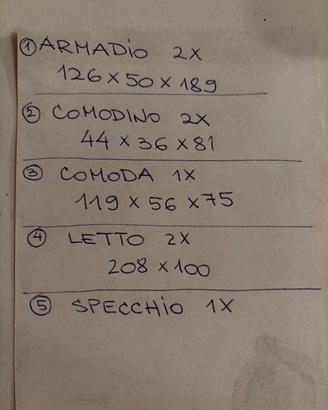 ① ARMADiO 2X
126 x 50 x 189
② COMODINO 2X
44 x 36 x 81
③ COMODA 1X
119 x 56 x 75
④ LETTO 2X
208 x 100
⑤ SPECCHiO 1X